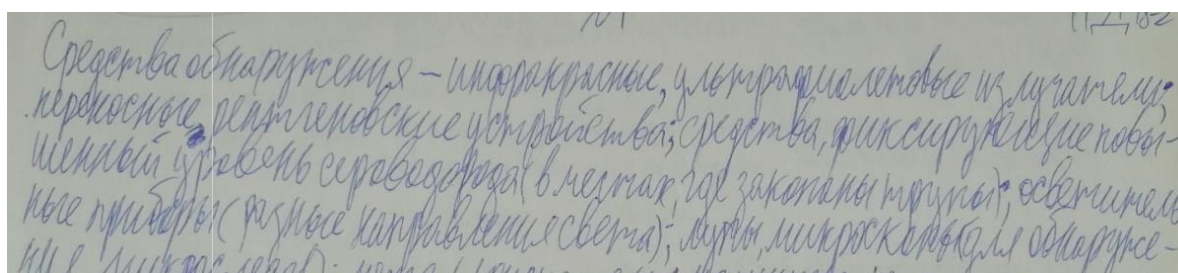 ПД 18-2
Средства обнаружения – инфракрасные, ультрафиолетовые излучатели;
переносные рентгеновские устройства; средства, фиксирующие повы-
шенный уровень сероводорода (в местах, где закопаны трупы); осветитель
ные приборы (разные направления света); лупы, микроскопы (для обнаруже-
ния микроследов);